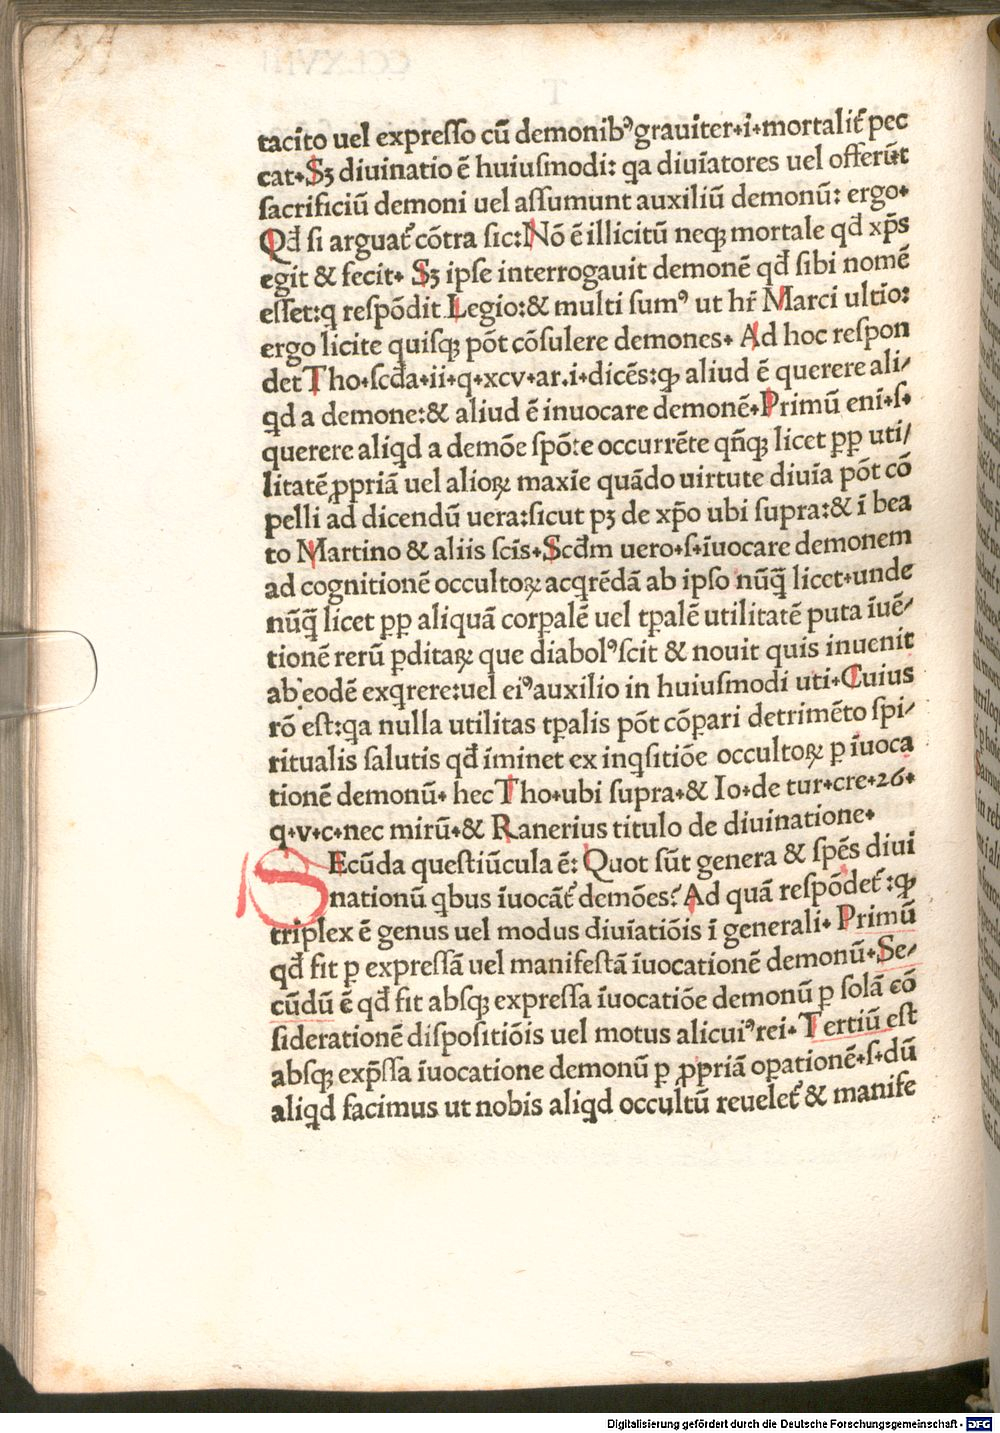 tacito uel expreſſo cū demonibꝰ grauiter·i·mortalit̄ pec
cat·Sꝫ diuinatio ē huiuſmodi: qa diuīatores uel offerūt
ſacrificiū demoni uel aſſumunt auxiliū demonū: ergo·
Qđ ſi arguat̄ cōtra ſic:Nō ē illicitū neqꝫ mortale qđ xp̄s
egit & fecit· Sꝫ ipſe interrogauit demonē qđ ſibi nomē
eſſet:q reſpōdit Legio:& multi ſumꝰ ut hr̄ Marci ultio:
ergo licite quiſqꝫ pōt cōſulere demones· Ad hoc reſpon
det Tho·ſcđa·ii·q·xcv·ar·i·dicēs:ꝙ aliud ē querere ali/
qd a demone:& aliud ē inuocare demonē·Primū eni·ſ·
querere aliqd a demōe ſpōte occurrēte qn̄qꝫ licet ꝓp uti/
litatē ꝓpriā uel alioꝝ maxīe quādo uirtute diuīa pōt cō
pelli ad dicendū uera:ſicut pꝫ de xp̄o ubi ſupra:& ī bea
to Martino & aliis ſcīs·Scđm uero·ſ·īuocare demonem
ad cognitionē occultoꝝ acqrēdā ab ipſo nūq̄ licet·unde
nūq̄ licet ꝓp aliquā corꝑalē uel tꝑalē utilitatē puta īuē/
tionē rerū ꝑditaꝝ que diabolꝰ ſcit & nouit quis inuenit
ab eodē exqrere:uel eiꝰ auxilio in huiuſmodi uti·Cuius
rō eſt:qa nulla utilitas tꝑalis pōt cōpari detrimēto ſpi/
ritualis ſalutis qđ īminet ex inqſitiōe occultoꝝ ꝑ īuoca
tionē demonū· hec Tho·ubi ſupra·& Io·de tur·cre·26·
q·v·c·nec mirū·& Ranerius titulo de diuinatione·
SEcūda queſtiūcula ē: Quot ſūt genera & ſpēs diui
nationū qbus īuocāt̄ demōes? Ad quā reſpōdet̄:ꝙ
triplex ē genus uel modus diuīatiōis ī generali· Primū
qđ fit ꝑ expreſſā uel manifeſtā īuocationē demonū·Se/
cūdū ē qđ fit abſqꝫ expreſſa īuocatiōe demonū ꝑ ſolā cō
ſiderationē diſpoſitiōis uel motus alicuiꝰ rei·Tertiū eſt
abſqꝫ exp̄ſſa īuocatione demonū ꝑ ꝓpriā opationē·ſ·dū
aliqd facimus ut nobis aliqd occultū reuelet̄ & manife
Digitalisierung gefördert durch die Deutsche Forschungsgemeinschaft - DFG